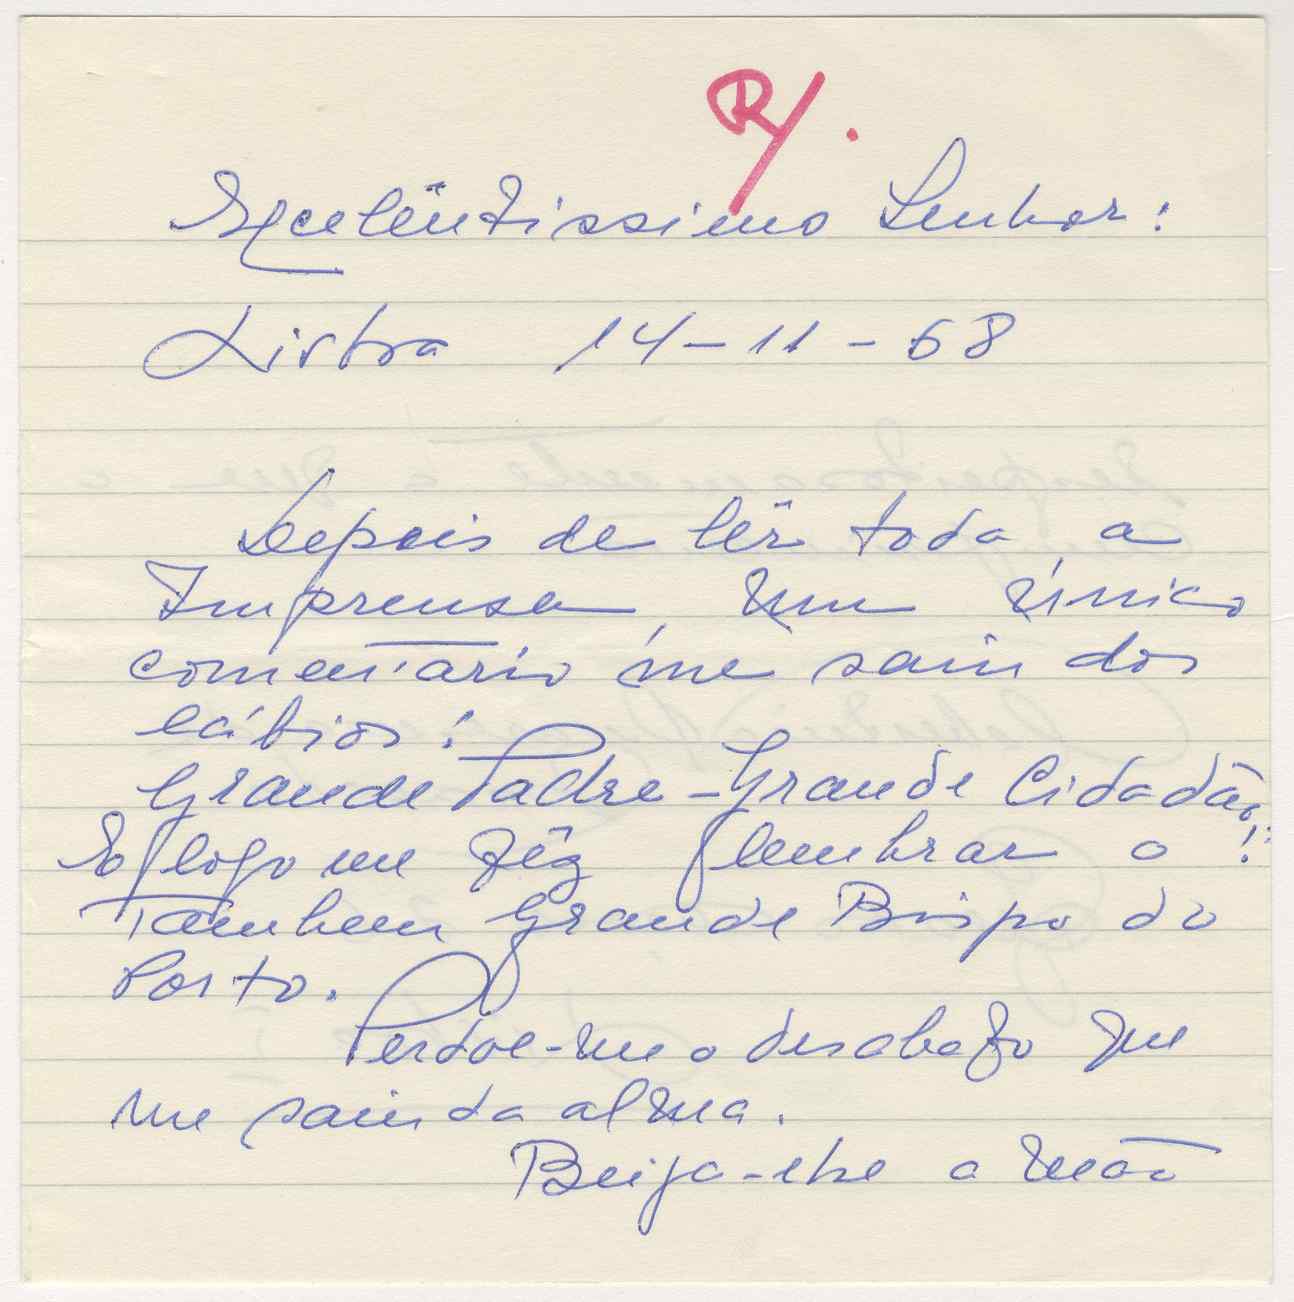 R/.
Excelêntissimo Senhor:
Lisboa 14-11-68
Depois de lêr toda a
Imprensa, um único
comentário me saíu dos
lábios:
Grande Padre - Grande Cidadão!
E logo me fêz lembrar o
Tambem Grande Bispo do
Porto.
Perdoe-me o desabafo que
me saíu da alma.
Beija-lhe a mão